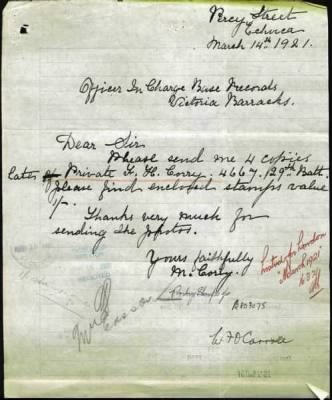 Percy Street
Echuca
March 14th 1921.
Officer In Charge Base Records
Victoria Barracks.
Dear Sir
Please send me 4 copies
late Private F. H. Corry. 4667. 29th Batt.
please find enclosed stamps value
1/-.
Thanks very much for
sending the photos.
Yours faithfully
M. Corry.
posted from London
March 1921
B803075